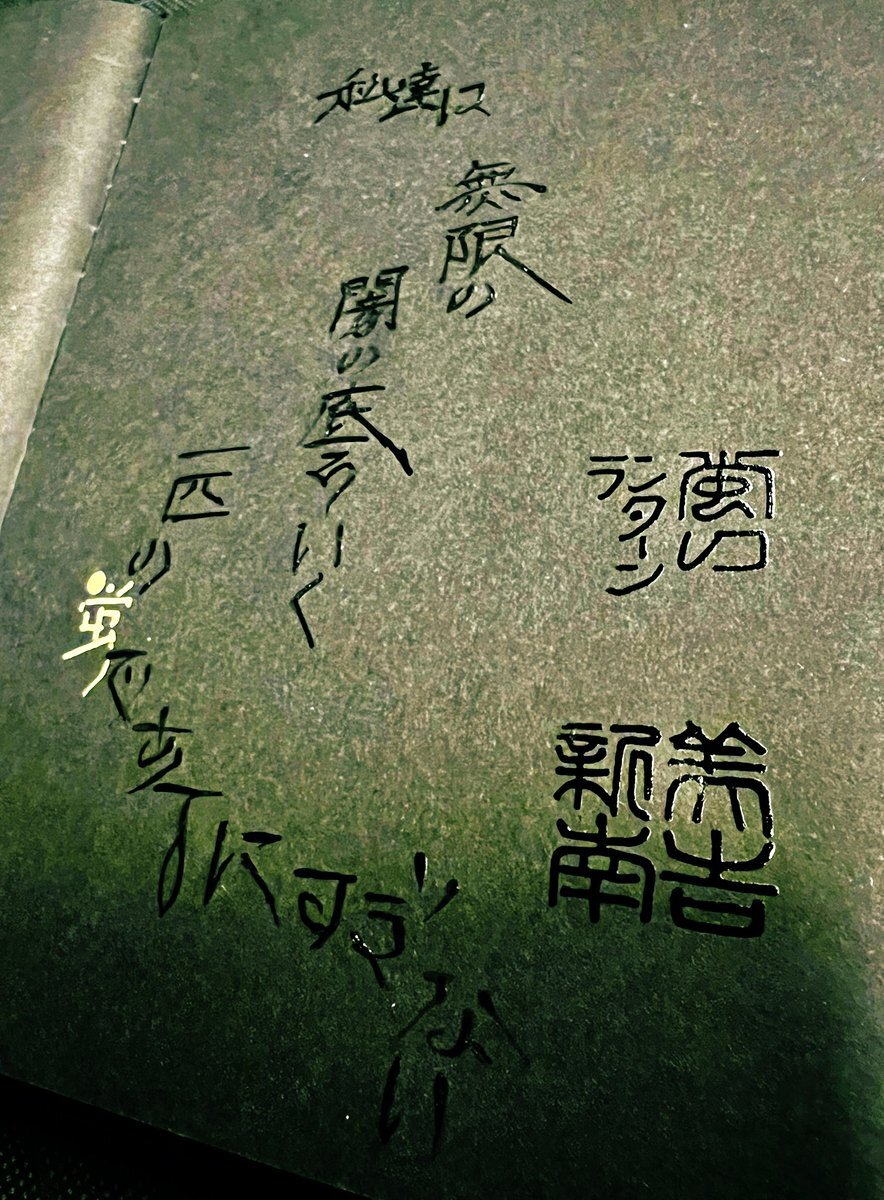 蛍の
ランターン
新美
南吉
私達は
無限の
闇の底をいく
一匹の
蛍であるにすぎない